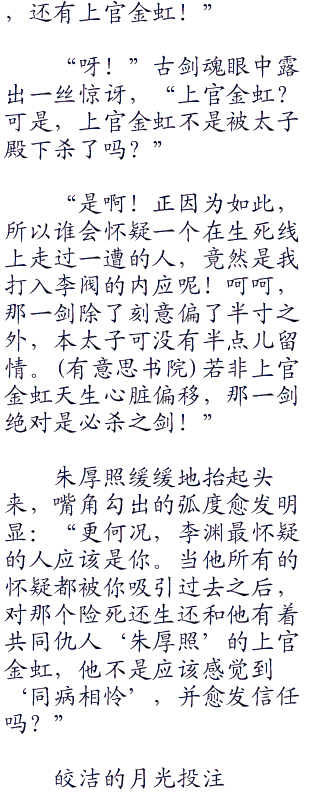 ，还有上官金虹！”
“呀！”古剑魂眼中露
出一丝惊讶，“上官金虹？
可是，上官金虹不是被太子
殿下杀了吗？”
“是啊！正因为如此，
所以谁会怀疑一个在生死线
上走过一遭的人，竟然是我
打入李阀的内应呢！呵呵，
那一剑除了刻意偏了半寸之
外，本太子可没有半点儿留
情。(有意思书院)若非上官
金虹天生心脏偏移，那一剑
绝对是必杀之剑！”
朱厚照缓缓地抬起头
来，嘴角勾出的弧度愈发明
显：“更何况，李渊最怀疑
的人应该是你。当他所有的
怀疑都被你吸引过去之后，
对那个险死还生还和他有着
共同仇人‘朱厚照’的上官
金虹，他不是应该感觉到
‘同病相怜’，并愈发信任
吗？”
皎洁的月光投注